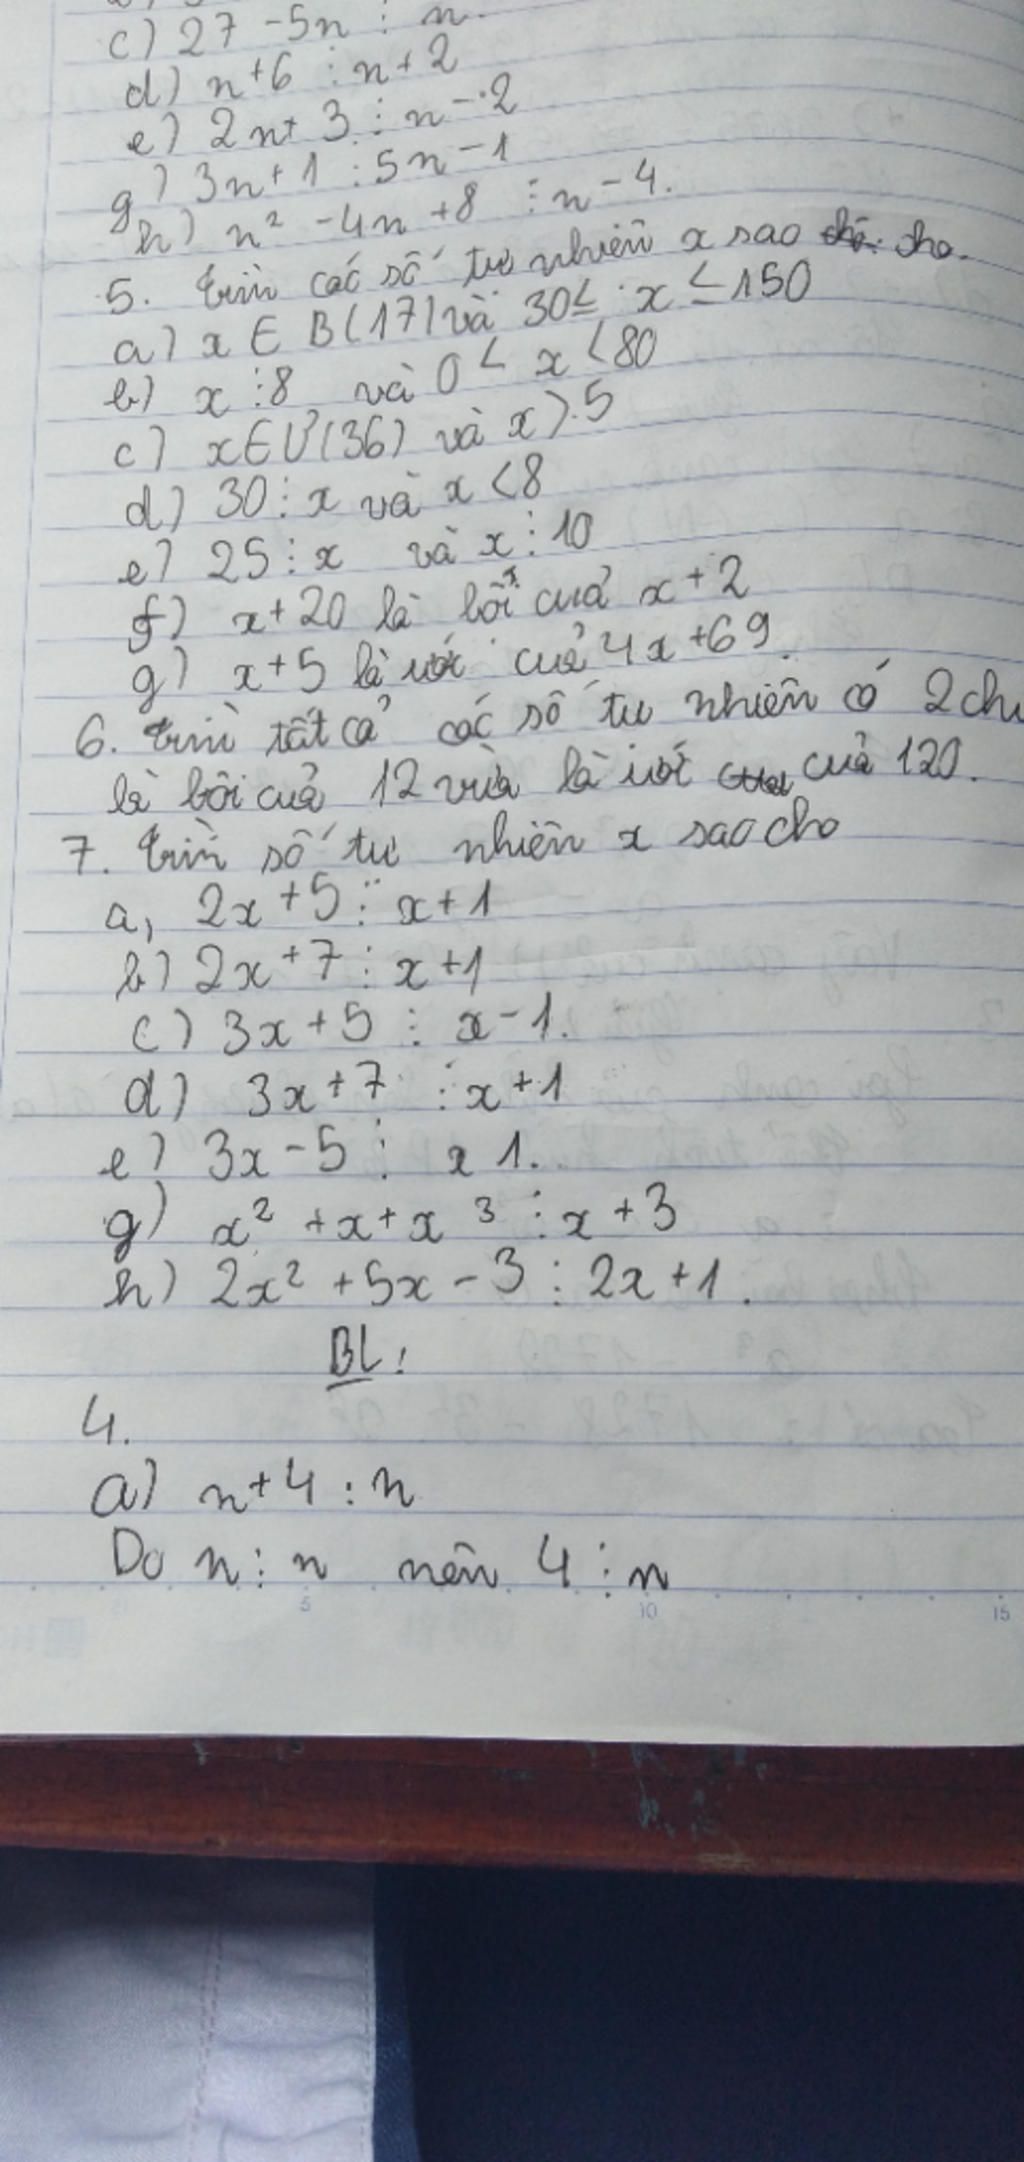 c) 27 - 5n ⋮ n.
d) n+6 ⋮ n+2
e) 2n+3 ⋮ n-2
g) 3n+1 ⋮ 5n-1
h) n² - 4n + 8 ⋮ n-4.
5. Tìm các số tự nhiên x sao cho.
a) x ∈ B(17) và 30 ≤ x ≤ 150
b) x ⋮ 8 và 0 < x < 80
c) x ∈ Ư(36) và x > 5
d) 30 ⋮ x và x < 8
e) 25 ⋮ x và x ⋮ 10
f) x+20 là bội của x+2
g) x+5 là ước của 4x+69.
6. Tìm tất cả các số tự nhiên có 2 ch
là bội của 12 vừa là ước của 120.
7. Tìm số tự nhiên x sao cho
a, 2x+5 ⋮ x+1
b) 2x+7 ⋮ x+1
c) 3x+5 ⋮ x-1.
d) 3x+7 ⋮ x+1
e) 3x-5 ⋮ x 1.
g) x² + x + x 3 ⋮ x+3
h) 2x² + 5x - 3 ⋮ 2x+1.
BL!
4.
a) n+4 : n
Do n ⋮ n nên 4 ⋮ n
5 10 15